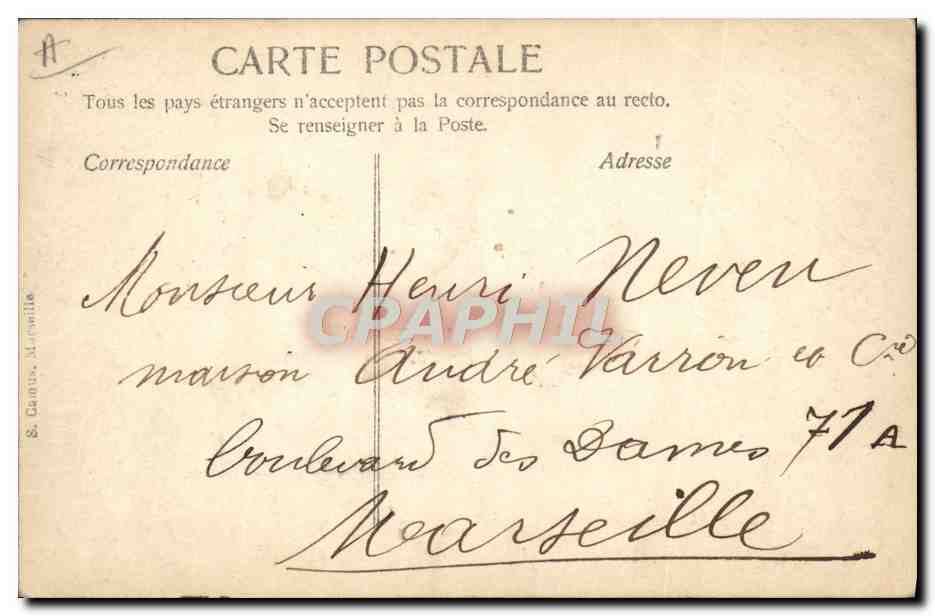 A
CARTE POSTALE
Tous les pays étrangers n'acceptent pas la correspondance au recto.
Se renseigner à la Poste.
Correspondance
Adresse
Monsieur Henri Neveu
maison André Varron et Cie
boulevard des Dames 71 A
Marseille
S. Camus, Marseille
CPAPHIL